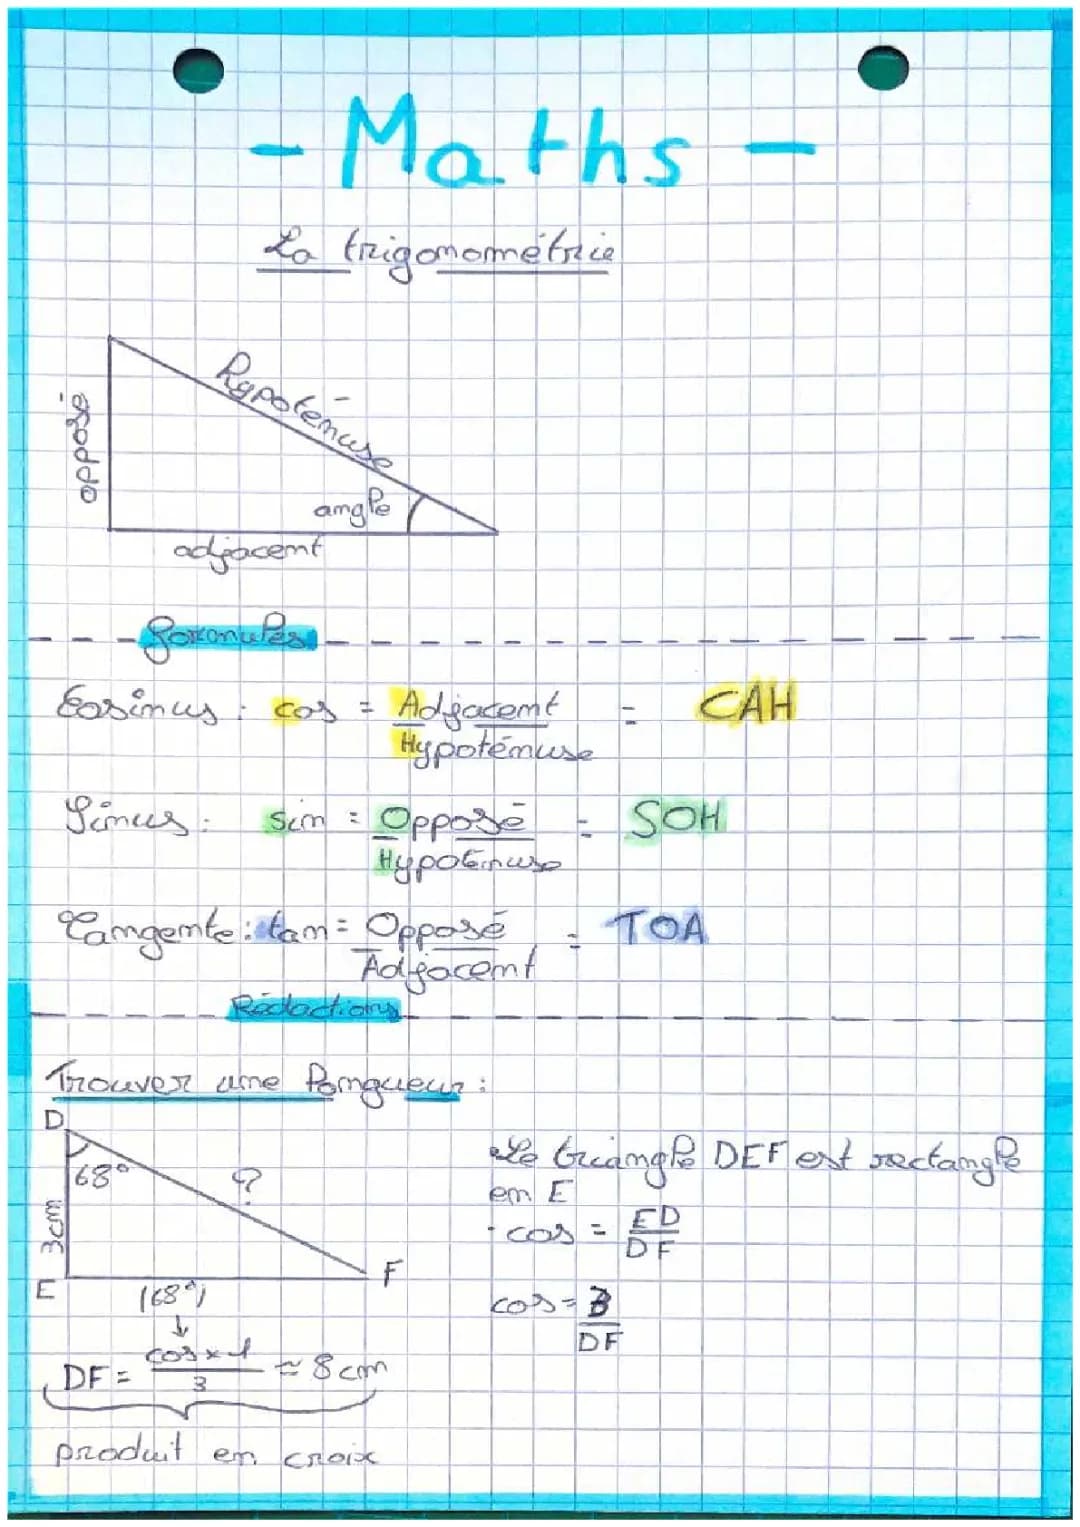 - Maths -
La trigonométrie
opposé
hypoténuse
angle
adjacent
formules
Cosinus : cos = Adjacent = CAH
Hypoténuse
Sinus : sin = Opposé = SOH
Hypoténuse
Tangente : tan = Opposé = TOA
Adjacent
Rédactions
Trouver une longueur :
D
68°
?
3cm
E
F
(68°)
↓
DF = cos x 1 ≈ 8 cm
3
produit en croix
Le triangle DEF est rectangle
en E
· cos = ED
DF
cos = 3
DF